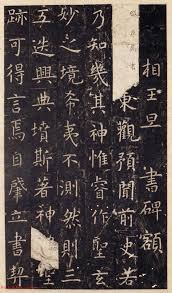 相王旦 書碑額
東觀預聞前史若
乃知幾其神惟睿作聖玄
妙之境希夷不測然則三
五迭興典墳斯著神聖
跡可得言焉自肇立書契